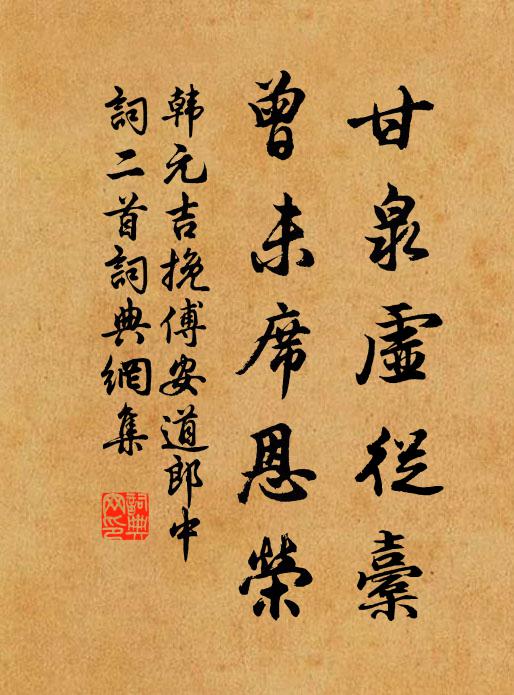 甘泉虛從橐
曾未席恩榮
韩元吉挽傅安道郎中
詞二首詞典網集
詞典網印